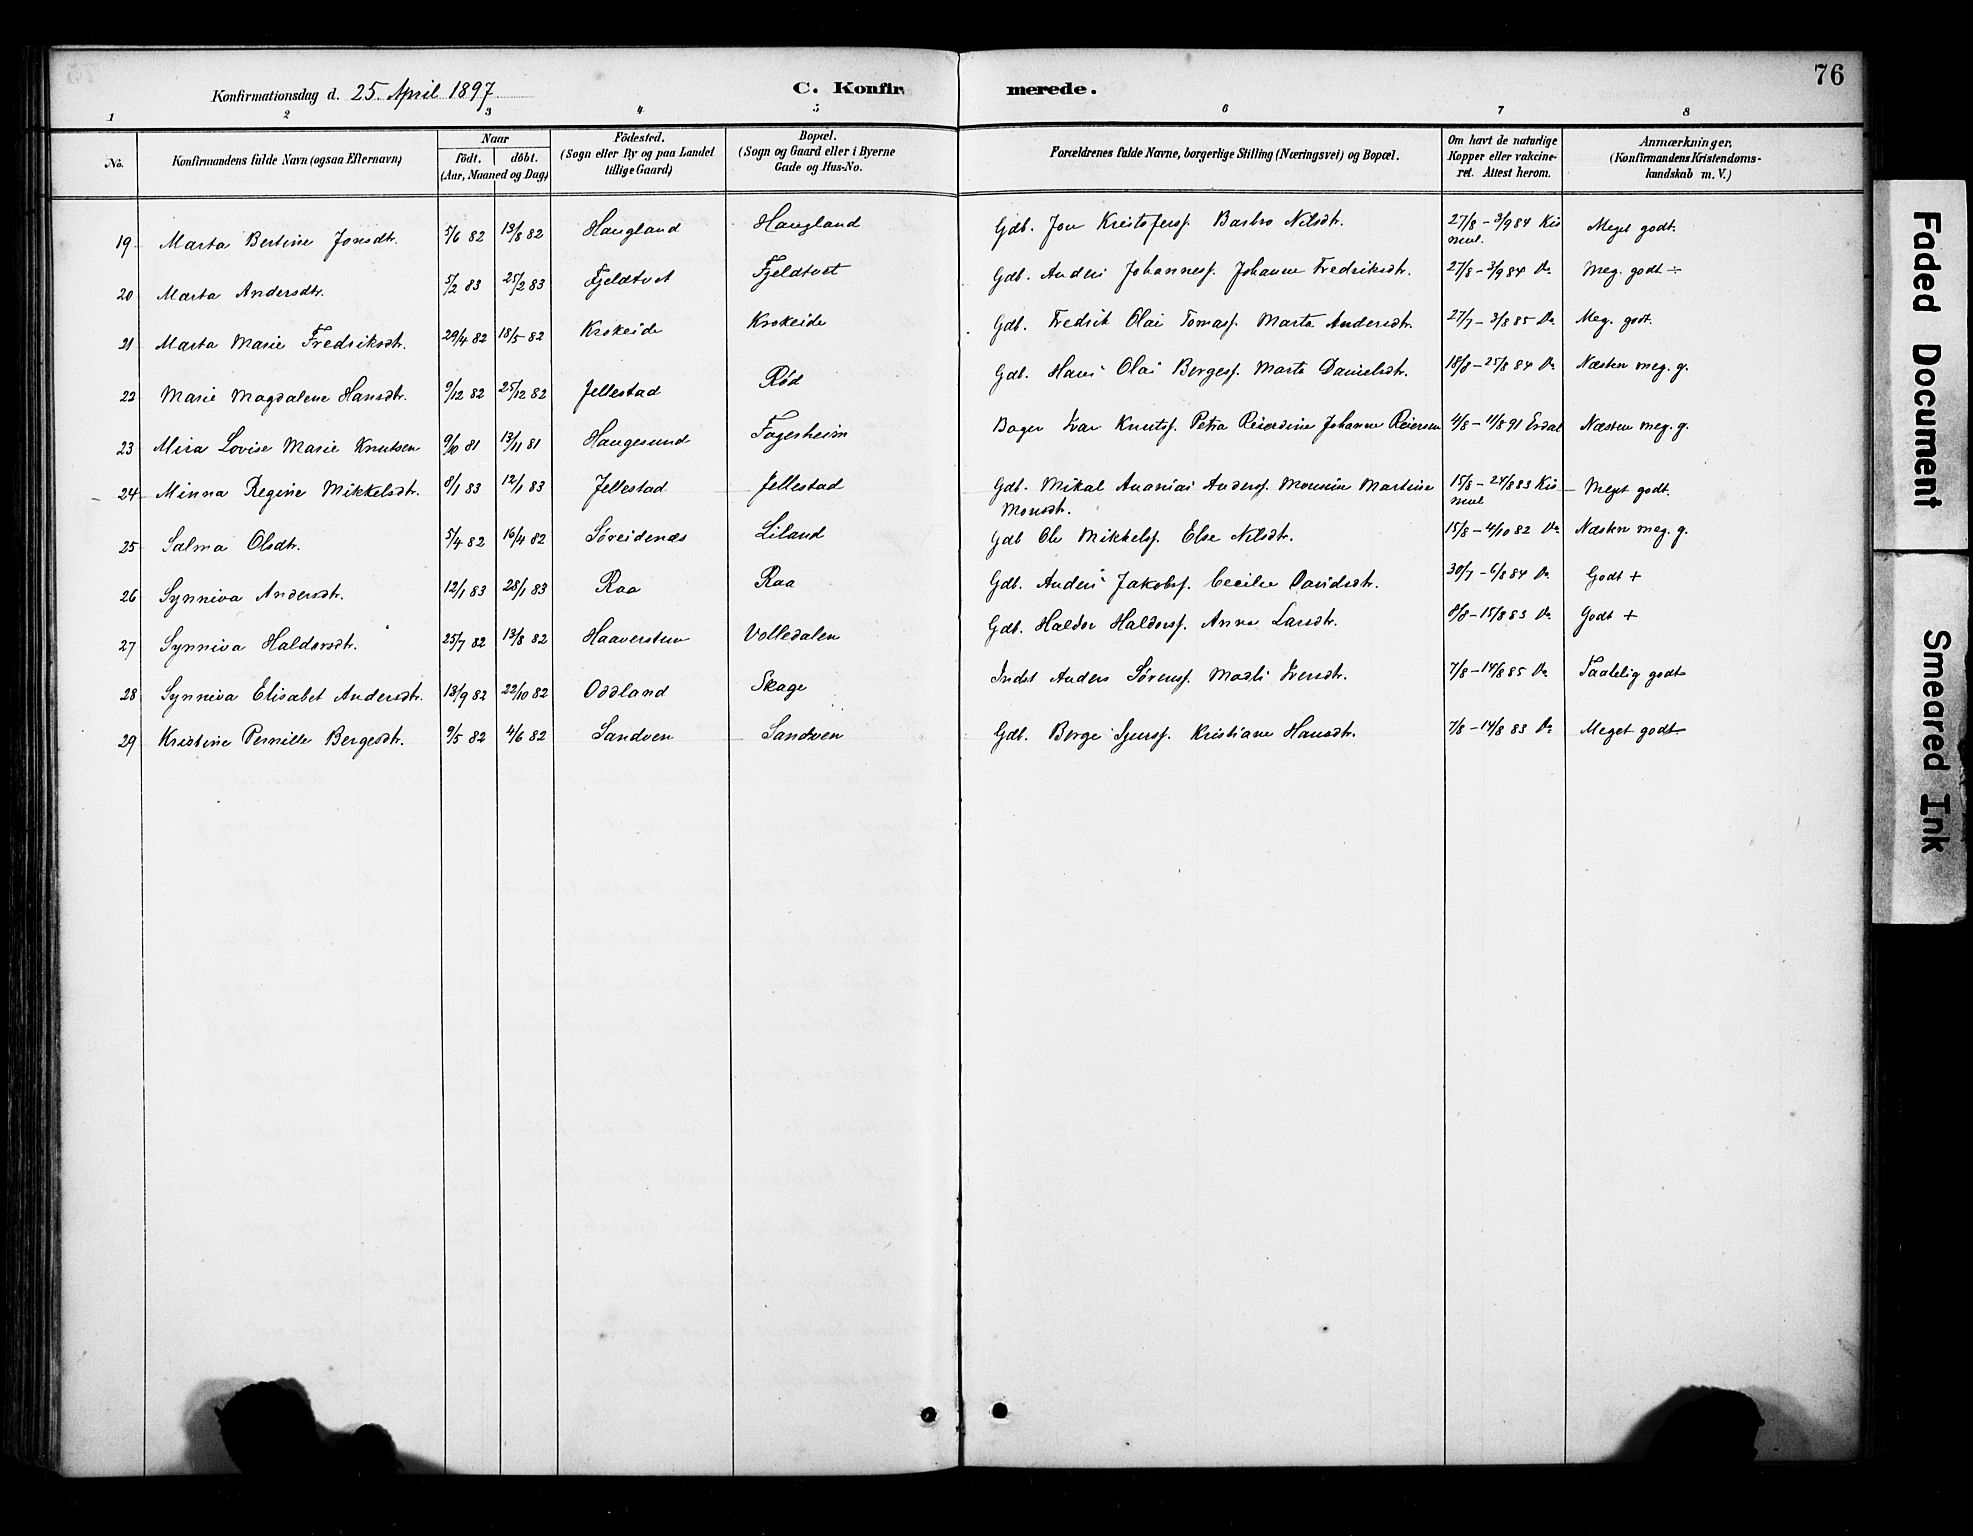 76
Konfirmationsdag d. 25. April 1897
C. Konfirmerede.
1 2 3 4 5 6 7 8
No. Konfirmandens fulde Navn (ogsaa Efternavn) Naar födt. döbt. (Aar, Maaned og Dag) Födested. (Sogn eller By og paa Landet tillige Gaard) Bopæl. (Sogn og Gaard eller i Byerne Gade og Hus-No. Forældrenes fulde Navne, borgerlige Stilling (Næringsvei) og Bopæl. Om havt de naturlige Kopper eller vakcineret. Attest herom. Anmærkninger, (Konfirmandens Kristendomskundskab m. V.)
19 Marta Bertine Jonsdtr. 5/6 82 13/8 82 Haugland Haugland Gdb. Jon Kristofersf. Barbro Nilsdtr. 27/8 - 3/9 84 Meget godt.
20 Marta Andersdtr. 5/2 83 25/2 83 Fjeldtvet Fjeldtvet Gdb. Anders Johannesf. Johanne Fredriksdtr. 27/8 - 3/9 84 Do Meg. godt ÷
21 Marta Marie Fredriksdtr. 29/4 82 18/5 82 Krokeide Krokeide Gdb. Fredrik Olai Tomasf. Marta Andersdtr. 27/7 - 3/8 85 Do Meg. godt.
22 Marie Magdalene Hansdtr. 9/12 82 25/12 82 Jellestad Rød Gdb. Hans Olai Bergesf. Marta Danielsdtr. 18/8 - 25/8 84 Do Næsten meg. g.
23 Mira Lovise Marie Knutsen 9/10 81 13/11 81 Haugesund Fagerheim Bager Ivar Knutsf. Petra Reierdine Johanne Reiersen 4/8 - 11/8 91 Erdal Næsten meg. g.
24 Minna Regine Mikkelsdtr. 8/1 83 12/1 83 Jellestad Jellestad Gdb. Mikal Ananias Andersf. Monsine Martine Monsdtr. 15/8 - 24/8 83 Meget godt.
25 Salma Olsdtr. 5/4 82 16/4 82 Søreidenæs Liland Gdb Ole Mikkelsf. Else Nilsdtr. 15/8 - 4/10 82 Do Næsten meg. g.
26 Synniva Andersdtr. 12/1 83 28/1 83 Raa Raa Gdb. Anders Jakobsf. Cecilie Davidsdtr. 30/7 - 6/8 84 Do Godt +
27 Synniva Haldorsdtr. 25/7 82 13/8 82 Haaverstun Volledalen Gdb. Haldor Haldorsf. Anna Larsdtr. 8/8 - 15/8 83 Do Godt +
28 Synniva Elisabet Andersdtr. 13/9 82 22/10 82 Oddland Skage Indst Anders Sørensf. Madli Iversdtr. 7/8 - 14/8 85 Do Taalelig godt
29 Kristine Pernille Bergesdtr. 9/5 82 4/6 82 Sandven Sandven Gdb. Berge Sjursf. Kristiane Hansdtr. 7/8 - 14/8 83 Do Meget godt
Faded Document
Smeared Ink